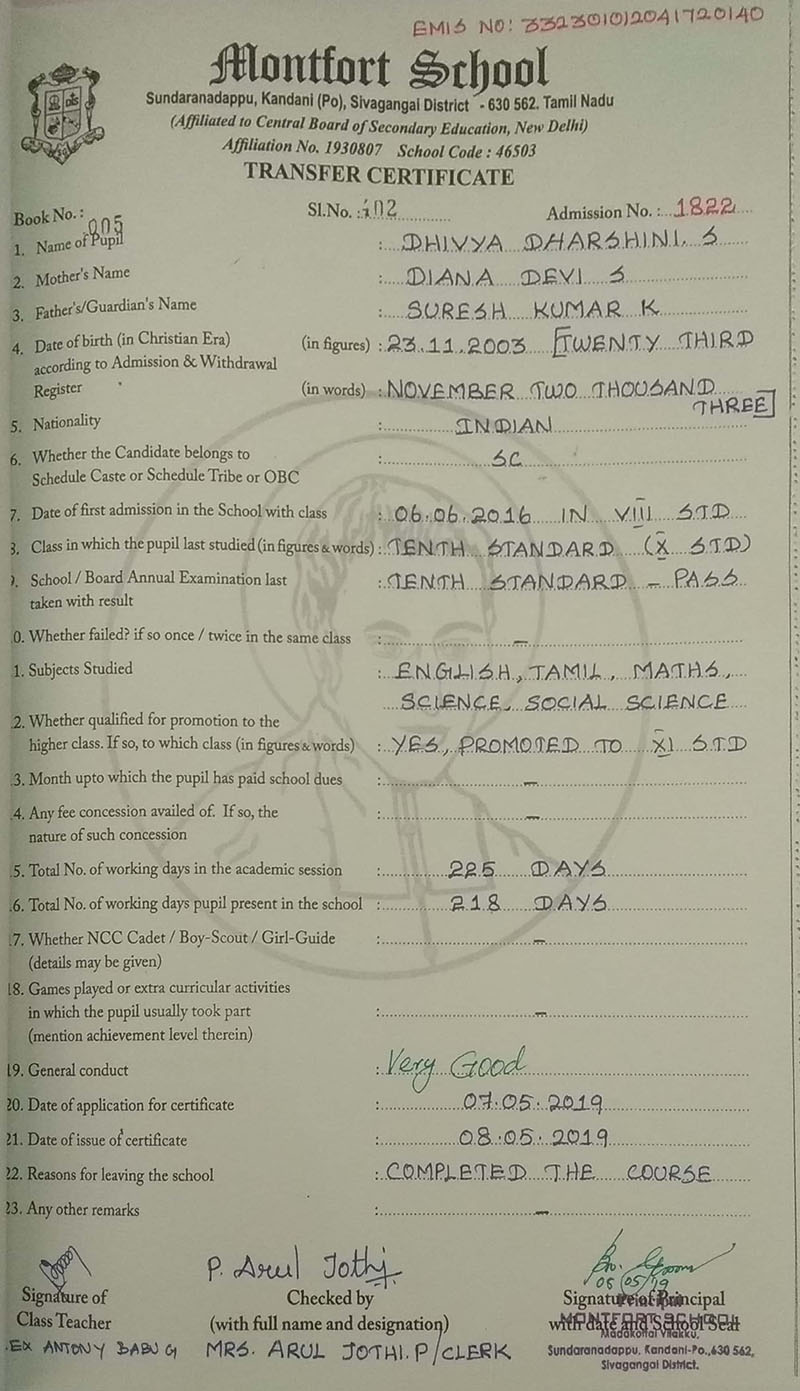 EMIS NO: 332301012041720140
Montfort School
Sundaranadappu, Kandani (Po), Sivagangai District - 630 562. Tamil Nadu
(Affiliated to Central Board of Secondary Education, New Delhi)
Affiliation No. 1930807 School Code : 46503
TRANSFER CERTIFICATE
Book No. : 005 Sl.No. : 102 Admission No. : 1822
1. Name of Pupil : DHIVYA DHARSHINI. S
2. Mother's Name : DIANA DEVI S
3. Father's/Guardian's Name : SURESH KUMAR K
4. Date of birth (in Christian Era) (in figures) : 23.11.2003 [TWENTY THIRD
according to Admission & Withdrawal
Register (in words) : NOVEMBER TWO THOUSAND
THREE]
5. Nationality : INDIAN
6. Whether the Candidate belongs to : SC
Schedule Caste or Schedule Tribe or OBC
7. Date of first admission in the School with class : 06.06.2016 IN VIII STD
8. Class in which the pupil last studied (in figures & words) : TENTH STANDARD (X STD)
). School / Board Annual Examination last : TENTH STANDARD - PASS
taken with result
0. Whether failed? if so once / twice in the same class : -
1. Subjects Studied : ENGLISH, TAMIL, MATHS,
SCIENCE, SOCIAL SCIENCE
2. Whether qualified for promotion to the
higher class. If so, to which class (in figures & words) : YES, PROMOTED TO XI STD
.3. Month upto which the pupil has paid school dues : -
.4. Any fee concession availed of. If so, the : -
nature of such concession
.5. Total No. of working days in the academic session : 225 DAYS
.6. Total No. of working days pupil present in the school : 218 DAYS
.7. Whether NCC Cadet / Boy-Scout / Girl-Guide : -
(details may be given)
18. Games played or extra curricular activities
in which the pupil usually took part : -
(mention achievement level therein)
19. General conduct : Very Good
20. Date of application for certificate : 07.05.2019
21. Date of issue of certificate : 08.05.2019
22. Reasons for leaving the school : COMPLETED THE COURSE
23. Any other remarks : -
P. Arul Jothi
08/05/19
Signature of Checked by Signature of Principal
Class Teacher (with full name and designation) with date and School Seal
MONTFORT SCHOOL
EX ANTONY BABU G MRS. ARUL JOTHI. P/CLERK Madakottai Vilakku,
Sundaranadappu, Kandani-Po.,630 562,
Sivagangai District.